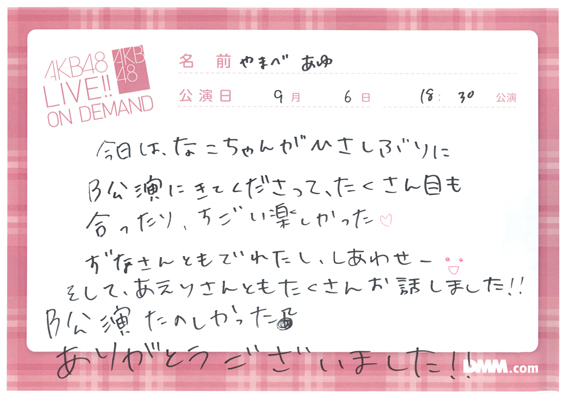 AKB48
LIVE!!
ON DEMAND
AKB
48
名前 やまべ あゆ
公演日 9月 6日 18:30 公演
今日は、なこちゃんがひさしぶりに
B公演にきてくださって、たくさん目も
合ったり、すごい楽しかった♡
ずなさんともでれたし、しあわせー
そして、あえりさんともたくさんお話しました!!
B公演たのしかった
ありがとうございました!!
DMM.com